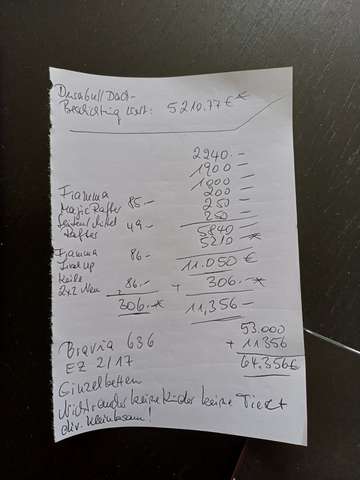 Durabull Dach-
Beschichtung kost: 5210.77 € *
2240.-
1900 -
1800 -
200 -
250 -
250.-
5840 -
5210 *
11.050 €
+ 306.-*
11,356 -
Fiamma
Magic Rafter 85.-
Seitenschidel
Rafter 49.-
Fiamma 86.-
Level up
Keile
2x2 Neu 86.-
306.-*
53.000
+ 11356
64.356€
Bravia 636
EZ 2/17
Einzelbetten
Nichtraucher keine Kinder keine Tiere
div. Kleinkram!